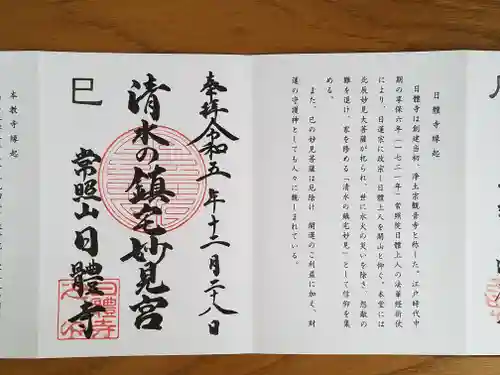 日體寺縁起
日體寺は創建当初、浄土宗観音寺と称した。江戸時代中
期の享保六年(一七二一年)常照院日體上人の法華経折伏
により、日蓮宗に改宗し日體上人を開山と仰ぐ。本堂には
北辰妙見大菩薩が祀られ、世に水火の災いを除き、怨敵の
難を退け、家を修める「清水の鎮宅妙見」として信仰を集
める。
また、巳の妙見菩薩は厄除け、開運のご利益に加え、財
運の守護神としても人々に親しまれている。
奉拝 令和五年十二月二十八日
清水の鎮宅妙見宮
巳
常照山日體寺
本教寺縁起